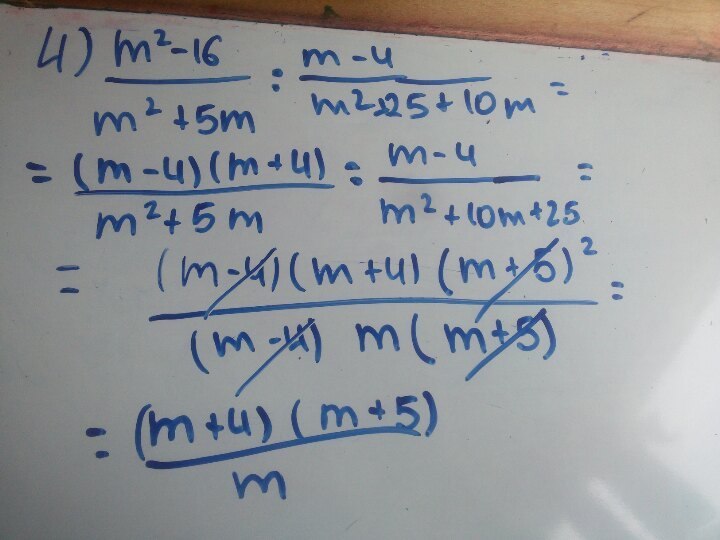 4) (m² - 16)/(m² + 5m) : (m - 4)/(m² + 25 + 10m) =
= ((m - 4)(m + 4))/(m² + 5m) : (m - 4)/(m² + 10m + 25) =
= ((m - 4)(m + 4)(m + 5)²)/((m - 4) m(m + 5)) =
= ((m + 4)(m + 5))/m